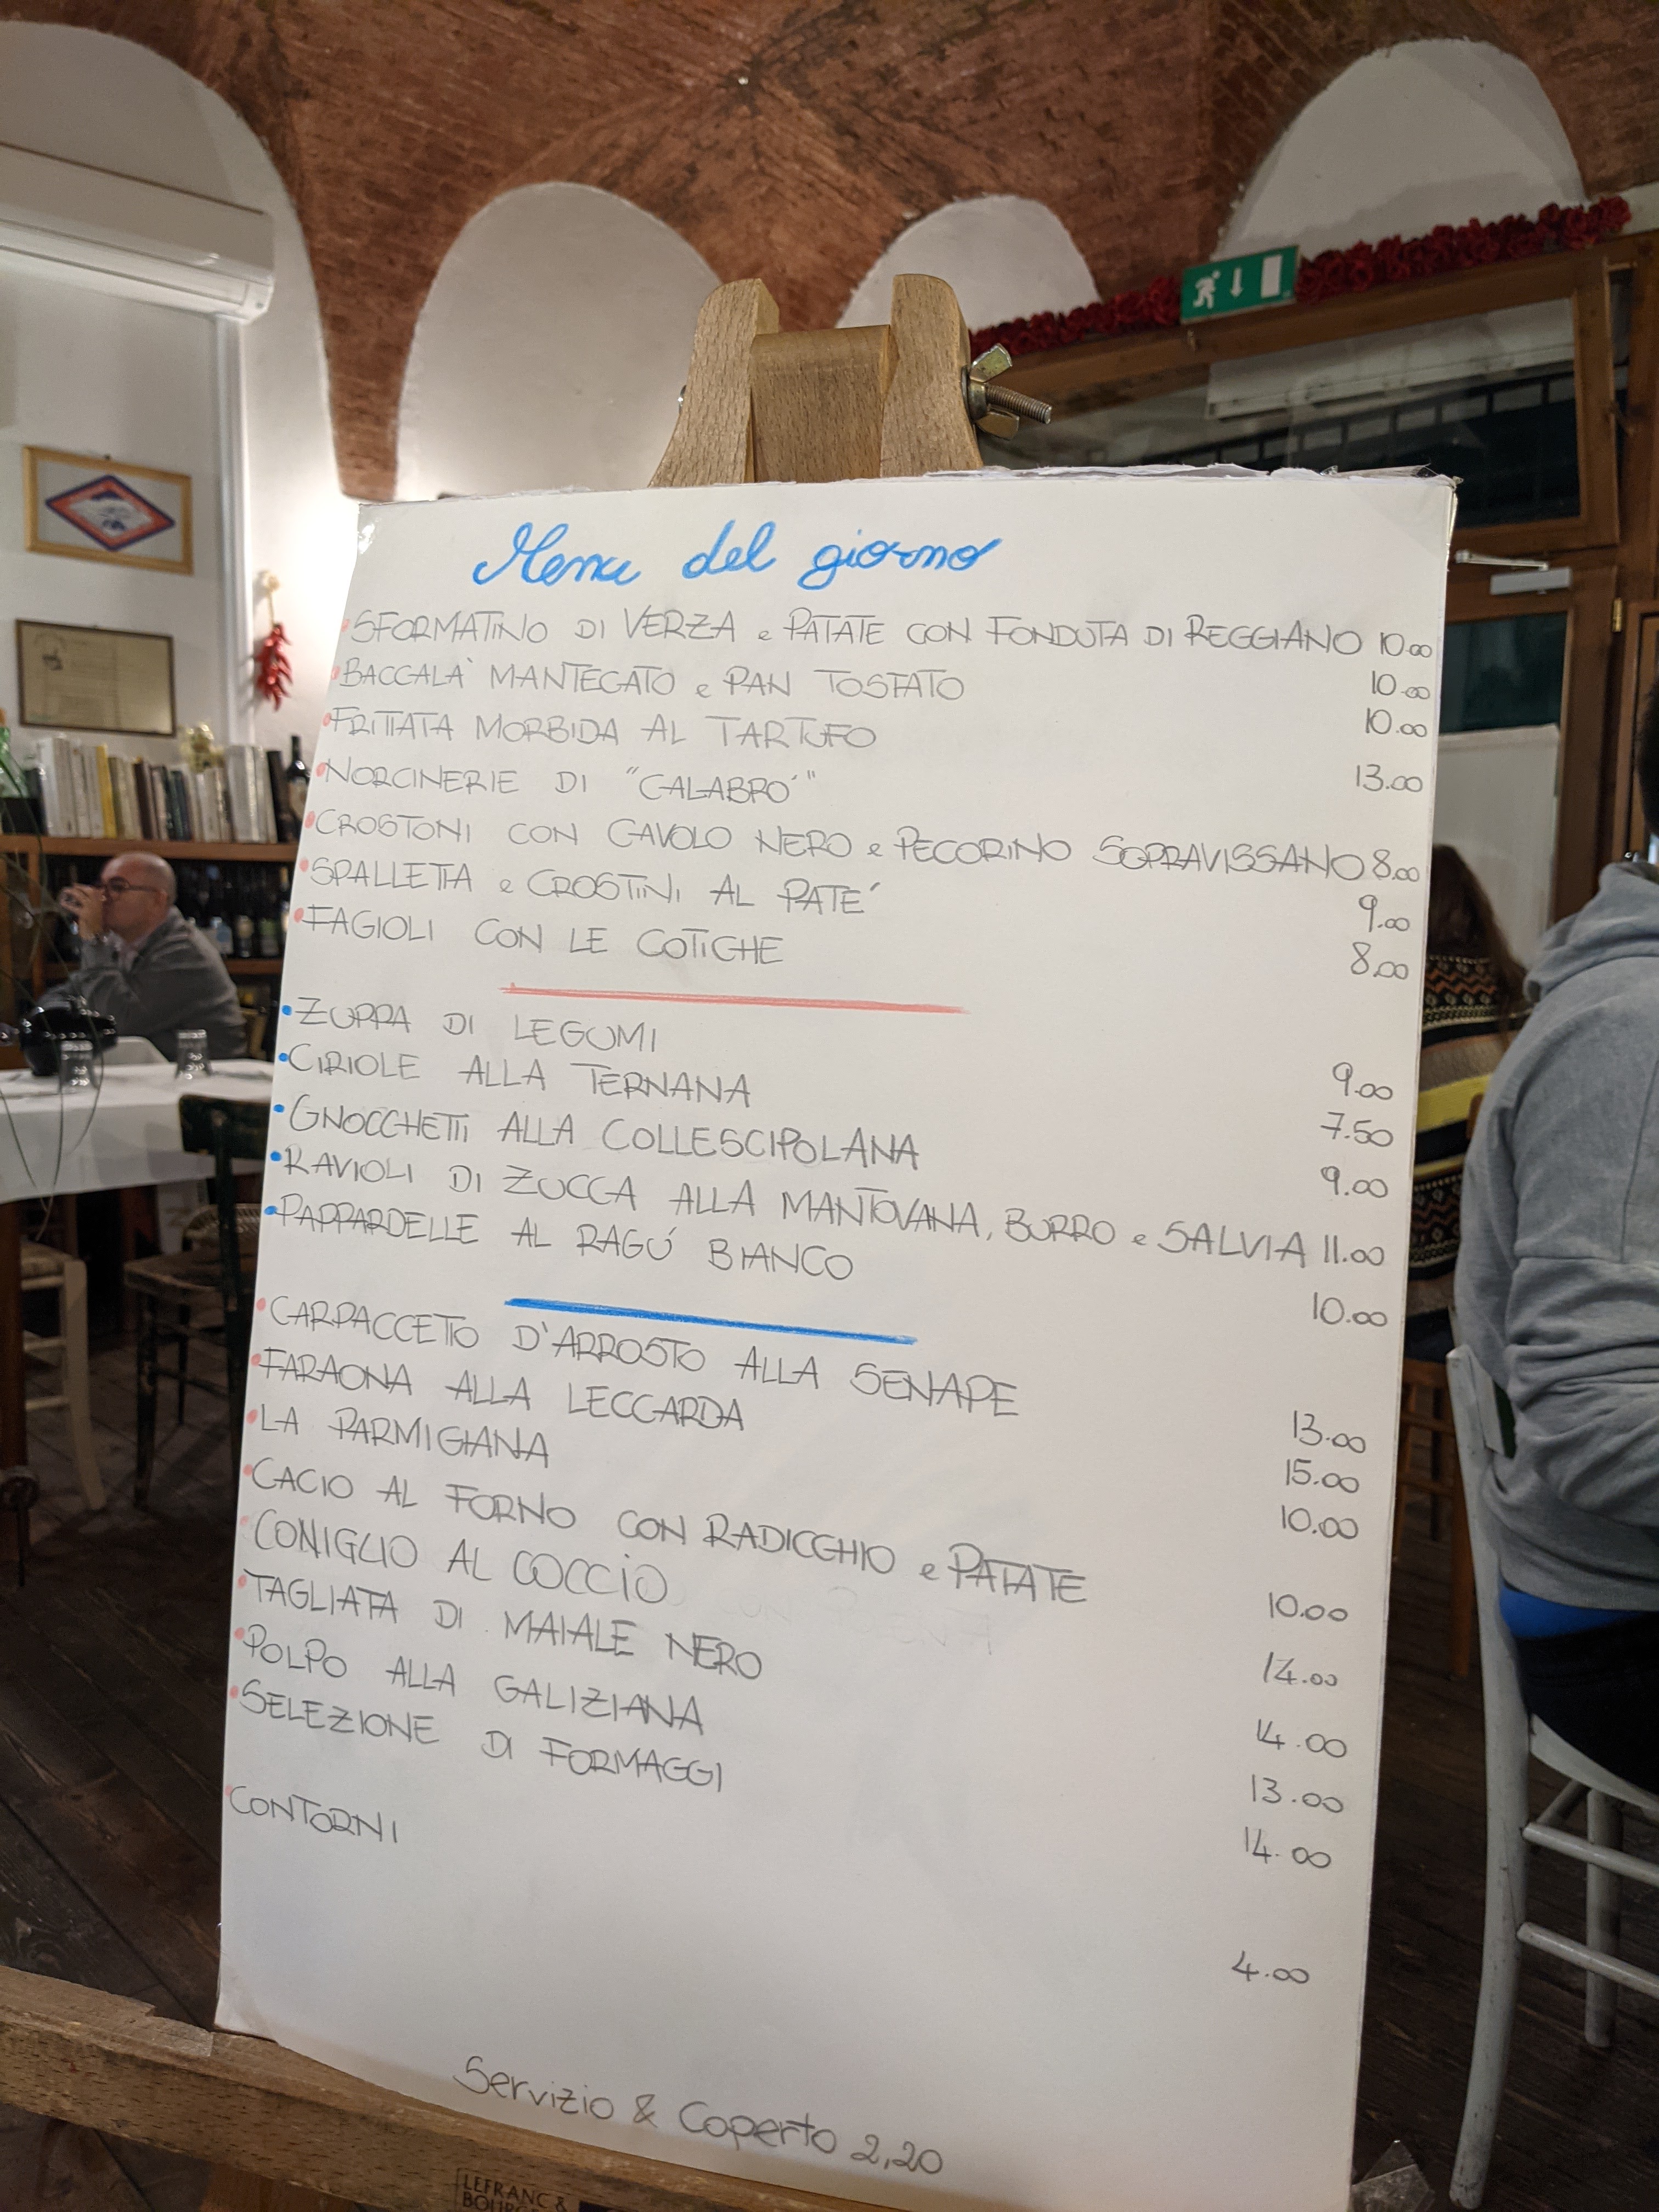 Menu del giorno
SFORMATINO DI VERZA e PATATE CON FONDUTA DI REGGIANO 10.00
BACCALA' MANTECATO e PAN TOSTATO 10.00
FRITTATA MORBIDA AL TARTUFO 10.00
NORCINERIE DI "CALABRO'" 13.00
CROSTONI CON CAVOLO NERO e PECORINO SOPRAVISSANO 8.00
SPALLETTA e CROSTINI AL PATE' 9.00
FAGIOLI CON LE COTICHE 8.00
ZUPPA DI LEGUMI 9.00
CIRIOLE ALLA TERNANA 7.50
GNOCCHETTI ALLA COLLESCIPOLANA 9.00
RAVIOLI DI ZUCCA ALLA MANTOVANA, BURRO e SALVIA 11.00
PAPPARDELLE AL RAGU' BIANCO 10.00
CARPACCETTO D'ARROSTO ALLA SENAPE 13.00
FARAONA ALLA LECCARDA 15.00
LA PARMIGIANA 10.00
CACIO AL FORNO CON RADICCHIO e PATATE 10.00
CONIGLIO AL COCCIO 14.00
TAGLIATA DI MAIALE NERO 14.00
POLPO ALLA GALIZIANA 13.00
SELEZIONE DI FORMAGGI 14.00
CONTORNI 4.00
Servizio & Coperto 2,20
LEFRANC &